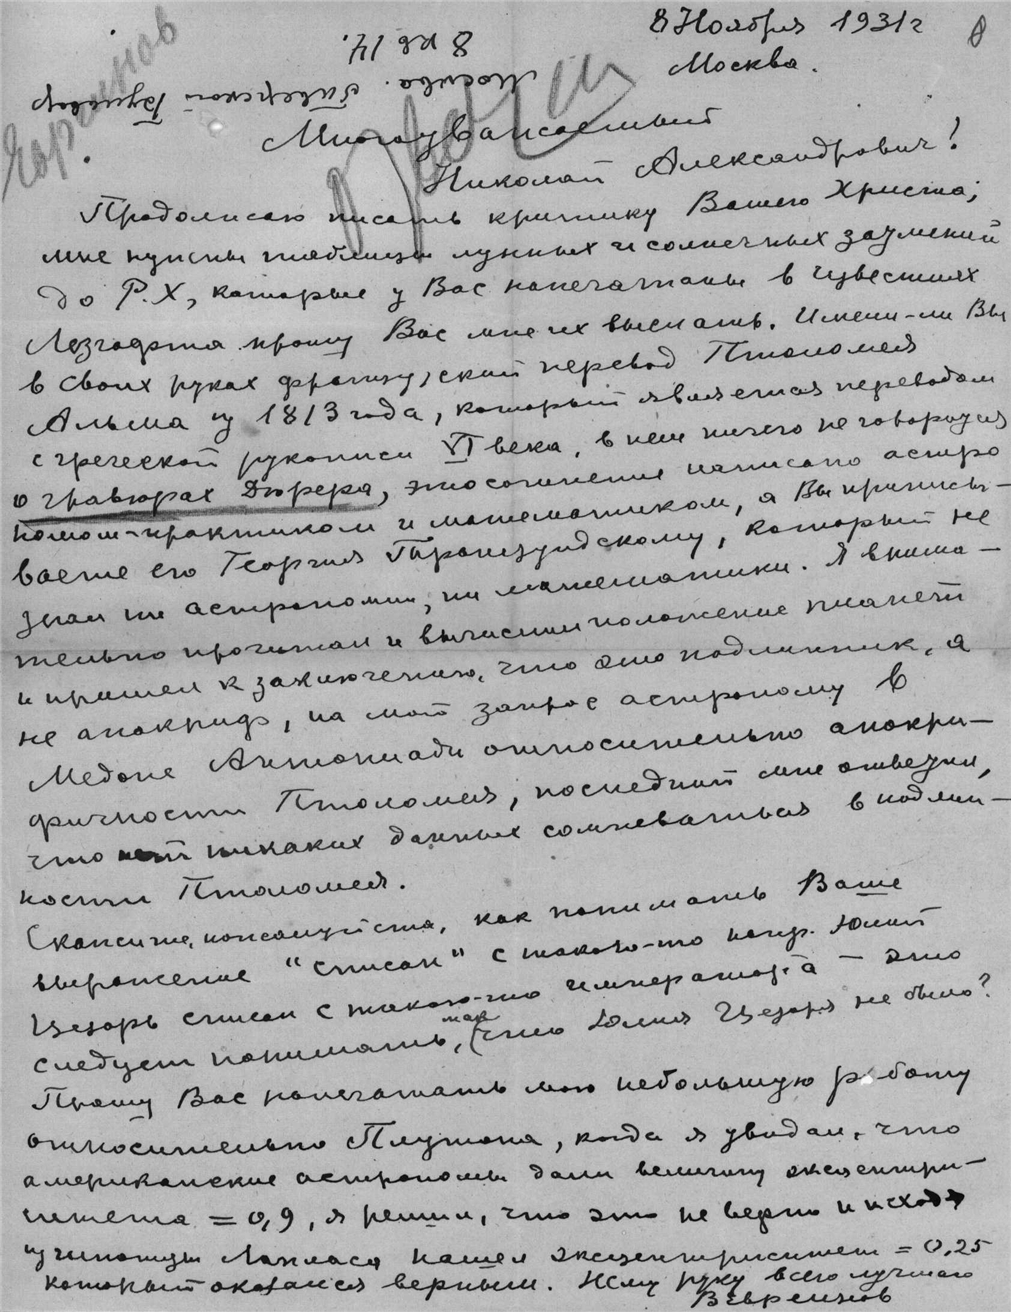 8 Ноября 1931 г
Москва.
8 кв 17.
Москва. Тверской Бульвар
Многоуважаемый
Николай Александрович!
Продолжаю писать критику Вашего Христа;
мне нужны таблицы лунных и солнечных затмений
до Р.Х, которые у Вас напечатаны в известиях
Лезгафта прошу Вас мне их выслать. Имели-ли Вы
в своих руках французский перевод Птоломея
Альма из 1813 года, который является переводом
с греческой рукописи VI века, в нем ничего не говорится
о гравюрах Дюрера, это сочинение написано астро
номом-практиком и математиком, а Вы приписы-
ваете его Георгия Трапезундскому, который не
знал ни астрономии, ни математики. Я внима-
тельно прочитал и вычислил положение планет
и пришел к заключению, что это подлинник, а
не апокриф, на мой запрос астроному в
Медоне Антониади относительно апокри-
фичности Птоломея, последний мне ответил,
что нет никаких данных сомневаться в подлин-
ности Птоломея.
Скажите, пожалуйста, как понимать Ваше
выражение "списан" с такого-то напр. Юлий
Цезарь списан с такого-то императора — это
следует понимать, так что Юлия Цезаря не было?
Прошу Вас напечатать мою небольшую работу
относительно Плутона, когда я увидал, что
американские астрономы дали величину эксцентри-
ситета = 0,9, я решил, что это не верно и исходя
из гипотезы Лапласа нашел эксцентриситет = 0,25
который оказался верным. Жму руку всего лучшего
В Евреинов